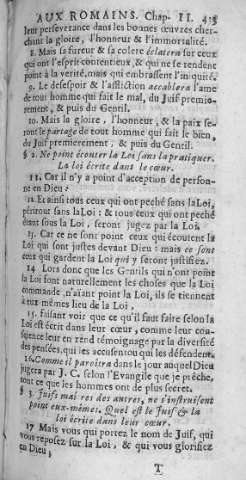 AUX ROMAINS. Chap. II.
leur perseverance dans les bonnes œuvres cher-
chant la gloire, l'honneur & l'immortalité.
8. Mais sa fureur & sa colere éclatera sur ceux
qui ont l'esprit contentieux, & qui ne se rendent
point à la verité, mais qui embrassent l'iniquité.
9. Le desespoir & l'affliction accablera l'ame
de tout homme qui fait le mal, du Juif premie-
rement, & puis du Gentil.
10. Mais la gloire, l'honneur, & la paix se-
ront le partage de tout homme qui fait le bien,
du Juif premierement; & puis du Gentil.
§ 2. Ne point écouter la Loi sans la pratiquer.
La loi écrite dans le cœur.
11. Car il n'y a point d'acception de person-
ne en Dieu:
12. Et ainsi tous ceux qui ont peché sans la Loi,
périront sans la Loi: & tous ceux qui ont peché
étant sous la Loi, seront jugez par la Loi.
13. Car ce ne sont point ceux qui écoutent la
Loi qui sont justes devant Dieu: mais ce sont
ceux qui gardent la Loi qui y seront justifiez.
14 Lors donc que les Gentils qui n'ont point
la Loi sont naturellement les choses que la Loi
commande, n'aïant point la Loi, ils se tiennent
à eux-mêmes lieu de la Loi,
15. faisant voir que ce qu'il faut faire selon la
Loi est écrit dans leur cœur, comme leur con-
science leur en rend témoignage par la diversité
des pensées, qui les accusent ou qui les défendent.
16. Comme il paroitra dans le jour auquel Dieu
jugera par J. C. selon l'Evangile que je prêche,
tout ce que les hommes ont de plus secret.
§ 3. Juifs maîtres des autres, ne s'instruisent
point eux-mêmes. Quel est le Juif & la
loi écrite dans leur cœur.
17 Mais vous qui portez le nom de Juif, qui
vous reposez sur la Loi, & qui vous glorifiez
en Dieu;
T